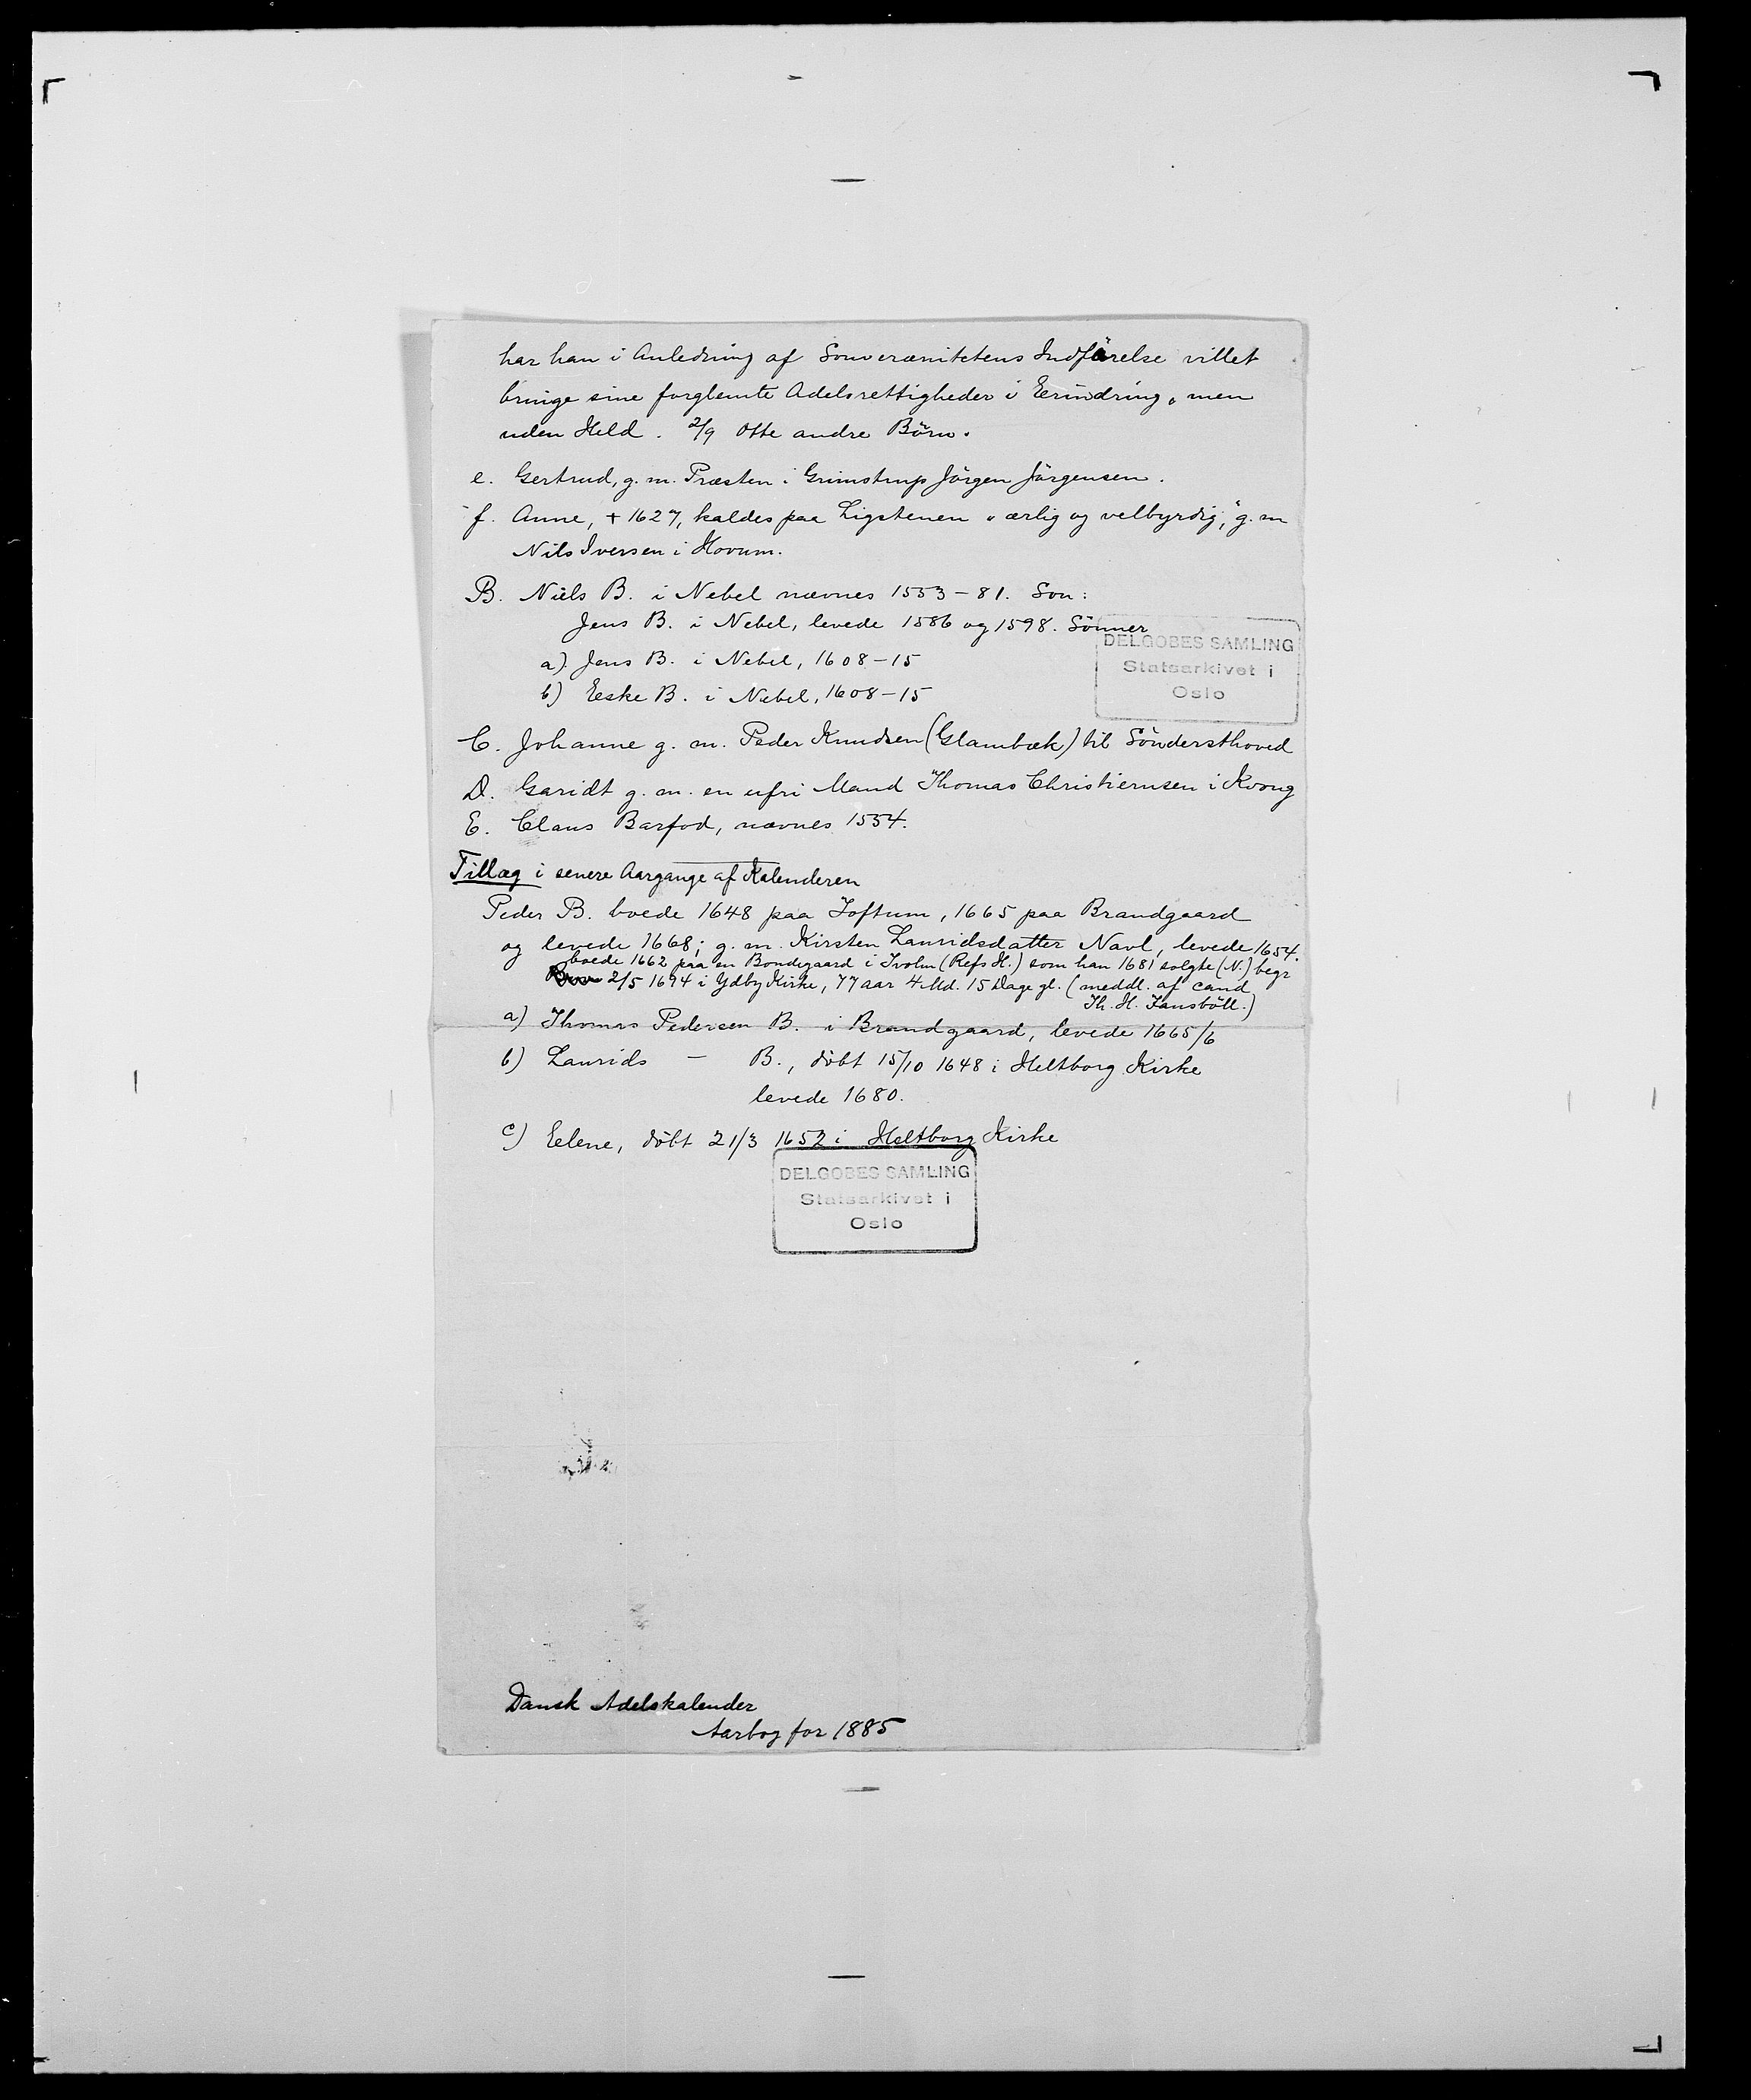 har han i Anledning af Souverænitetens Indförelse villet
bringe sine forglemte Adelsrettigheder i Erindring, men
uden Held. 2/9 Otte andre Börn.
e. Gertrud, g. m. Præsten i Grimstrup Jörgen Jörgensen.
f. Anne, + 1627, kaldes paa Ligstenen "ærlig og velbyrdig," g. m
Nils Iversen i Hovum.
B. Niels B. i Nebel nævnes 1553-81. Son:
Jens B. i Nebel, levede 1586 og 1598. Sönner
DELGOBES SAMLING
Statsarkivet i
Oslo
a) Jens B. i Nebel, 1608-15
b) Eeske B. i Nebel, 1608-15
C. Johanne g. m. Peder Knudsen (Glambæk) til Söndersthoved
D. Garidt g. m. en ufri Mand Thomas Christiernsen i Kvong
E. Claus Barfod, nævnes 1554.
Tillæg i senere Aargange af Kalenderen
Peder B. boede 1648 paa Toftum, 1665 paa Brandgaard
og levede 1668; g. m. Kirsten Lauridsdatter Navl, levede 1654.
boede 1662 paa en Bondegaard i Ivolm (Refs H.) som han 1681 solgte (N.) begr
2/5 1694 i Ydby Kirke, 77 aar 4 Md. 15 Dage gl. (meddl. af cand
Th. H. Jansböll.)
a) Thomas Pedersen B. i Brandgaard, levede 1665/6
b) Laurids — B., döbt 15/10 1648 i Heltborg Kirke
levede 1680.
c) Eelene, döbt 21/3 1652 i Heltborg Kirke
DELGOBES SAMLING
Statsarkivet i
Oslo
Dansk Adelskalender
Aarbog for 1885